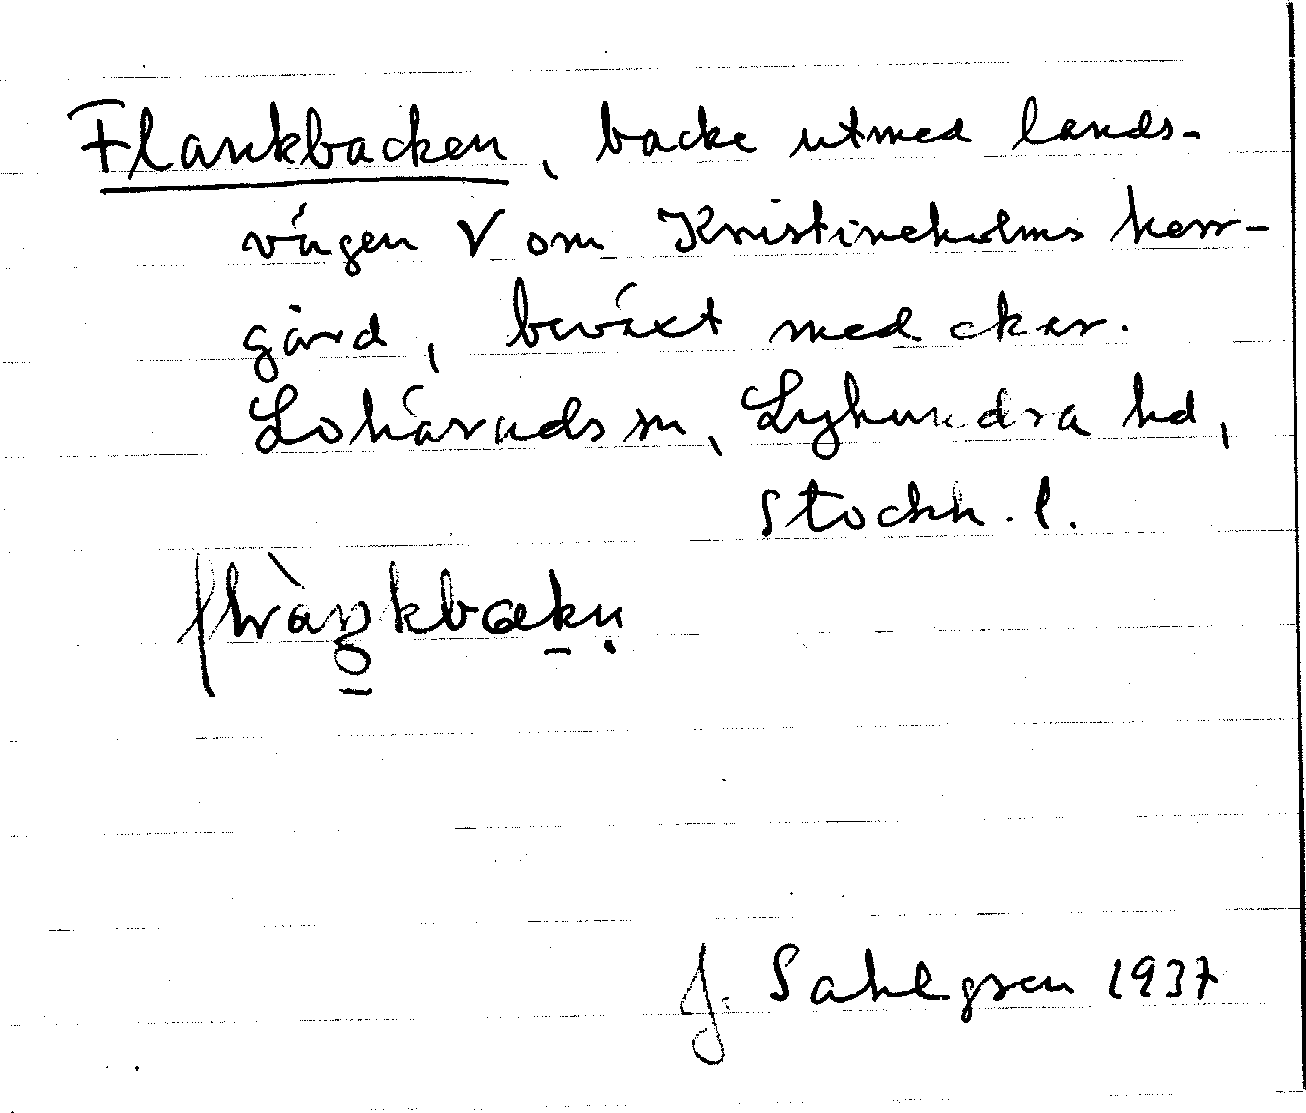 Flankbacken, backe utmed lands-
vägen V om Kristineholms herr-
gård, beväxt med ekar.
Lohärads sn, Lyhundra hd,
Stockh. l.
J. Sahlgren 1937